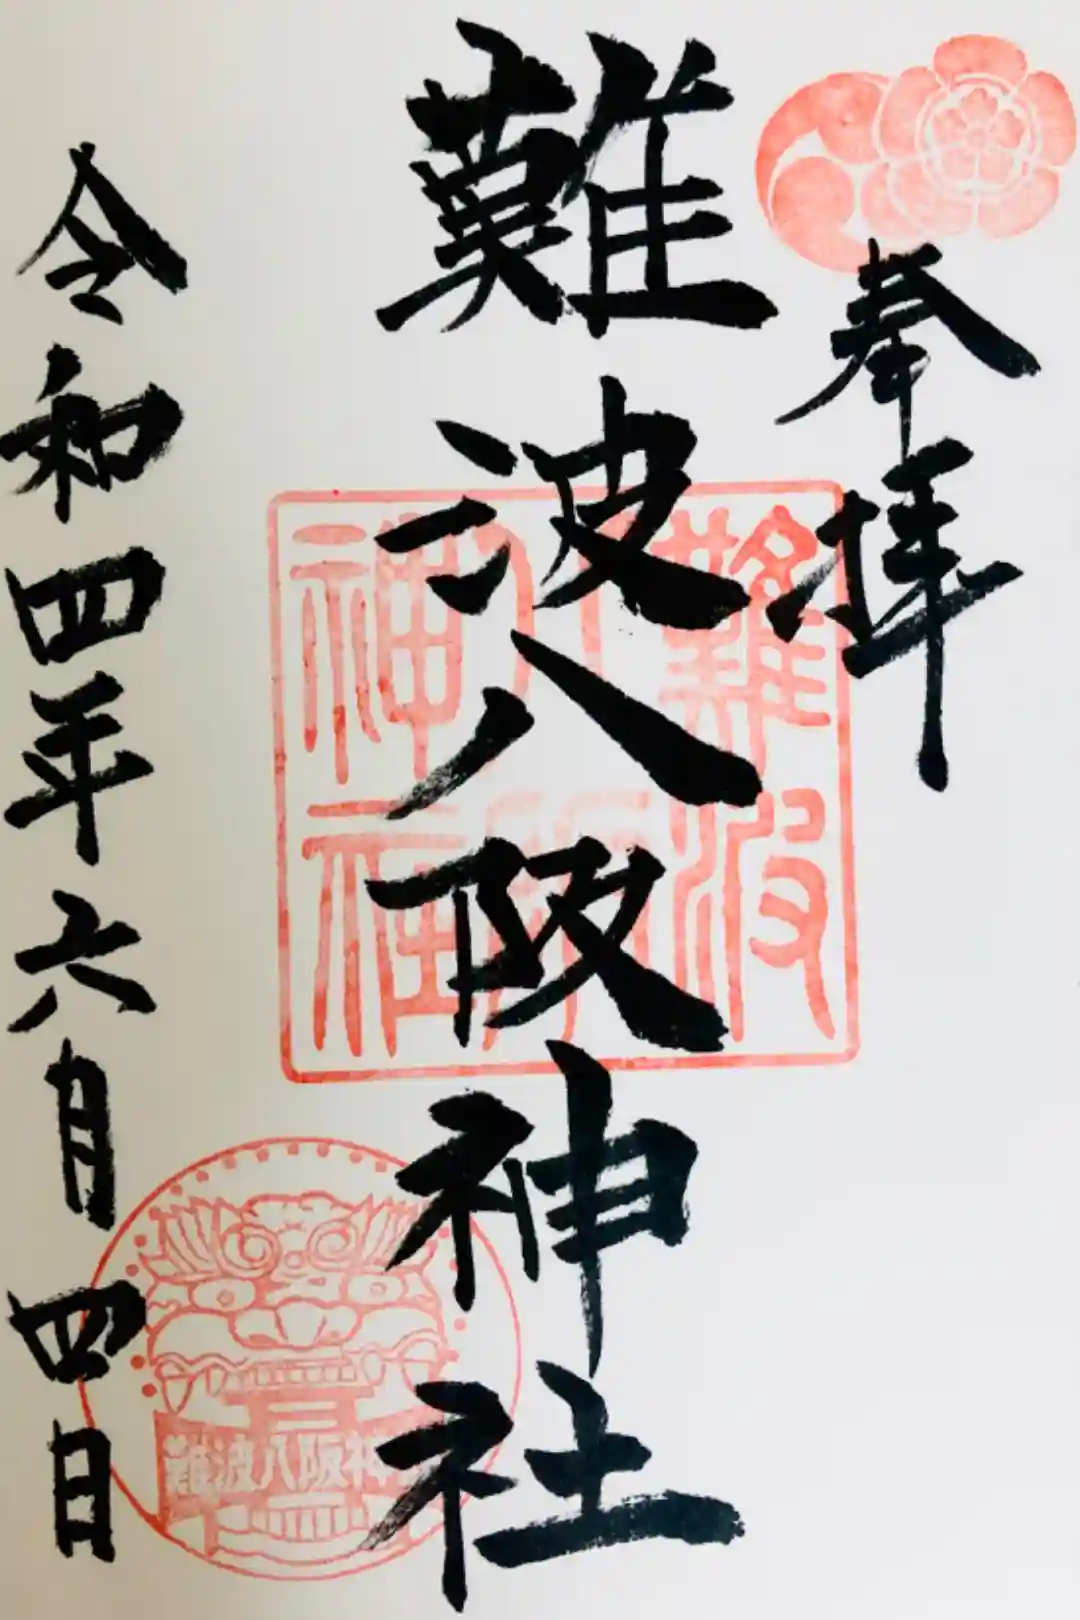 奉拝
難波八阪神社
令和四年六月四日
難波
八阪
神社
難波八阪神